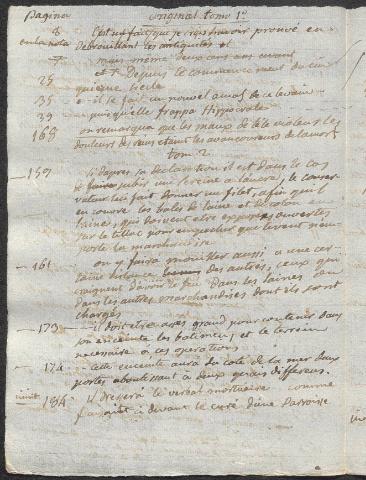 Pagina original tomo 1º
8 C'est un fait que je crois avoir prouvé en
en la nota debrouillant les antiquités et
7 mais même deux cens ans avant
et depuis le commencement du cin
25 quieme siecle
35 il se fait un nouvel amas de ce levain
39 qui quelle frappa Hippocrate
168 on remarqua que les maux de tête violens les
douleurs des reins etaient les avant coureurs de la mort
tom 2
159 si d'apres sa declaration il est dans le cas
de faire subir une sereine a la voile, le conser
vateur lui fait donner un filet, afin qu'il
en couvre les bales de laine et de coton en
laine, qui doivent etre exposées ouvertes
sur le tillac pour empecher que le vent n'em
porte la marchandise
161 on y faira mouiller aussi a une cer
taine distance des autres, ceux qui
craignent d'avoir le feu dans les laines ou
dans les autres marchandises dont ils sont
chargés
173 il doit etre assés grand pour contenir dans
son enceinte les batimens, et le terrein
necessaire a ces operations
174 cette enceinte aura du coté de la mer deux
portes aboutissant a deux quais differens.
184 il dressera le verbal mortuaire comme
devant le curé d'une Parroisse